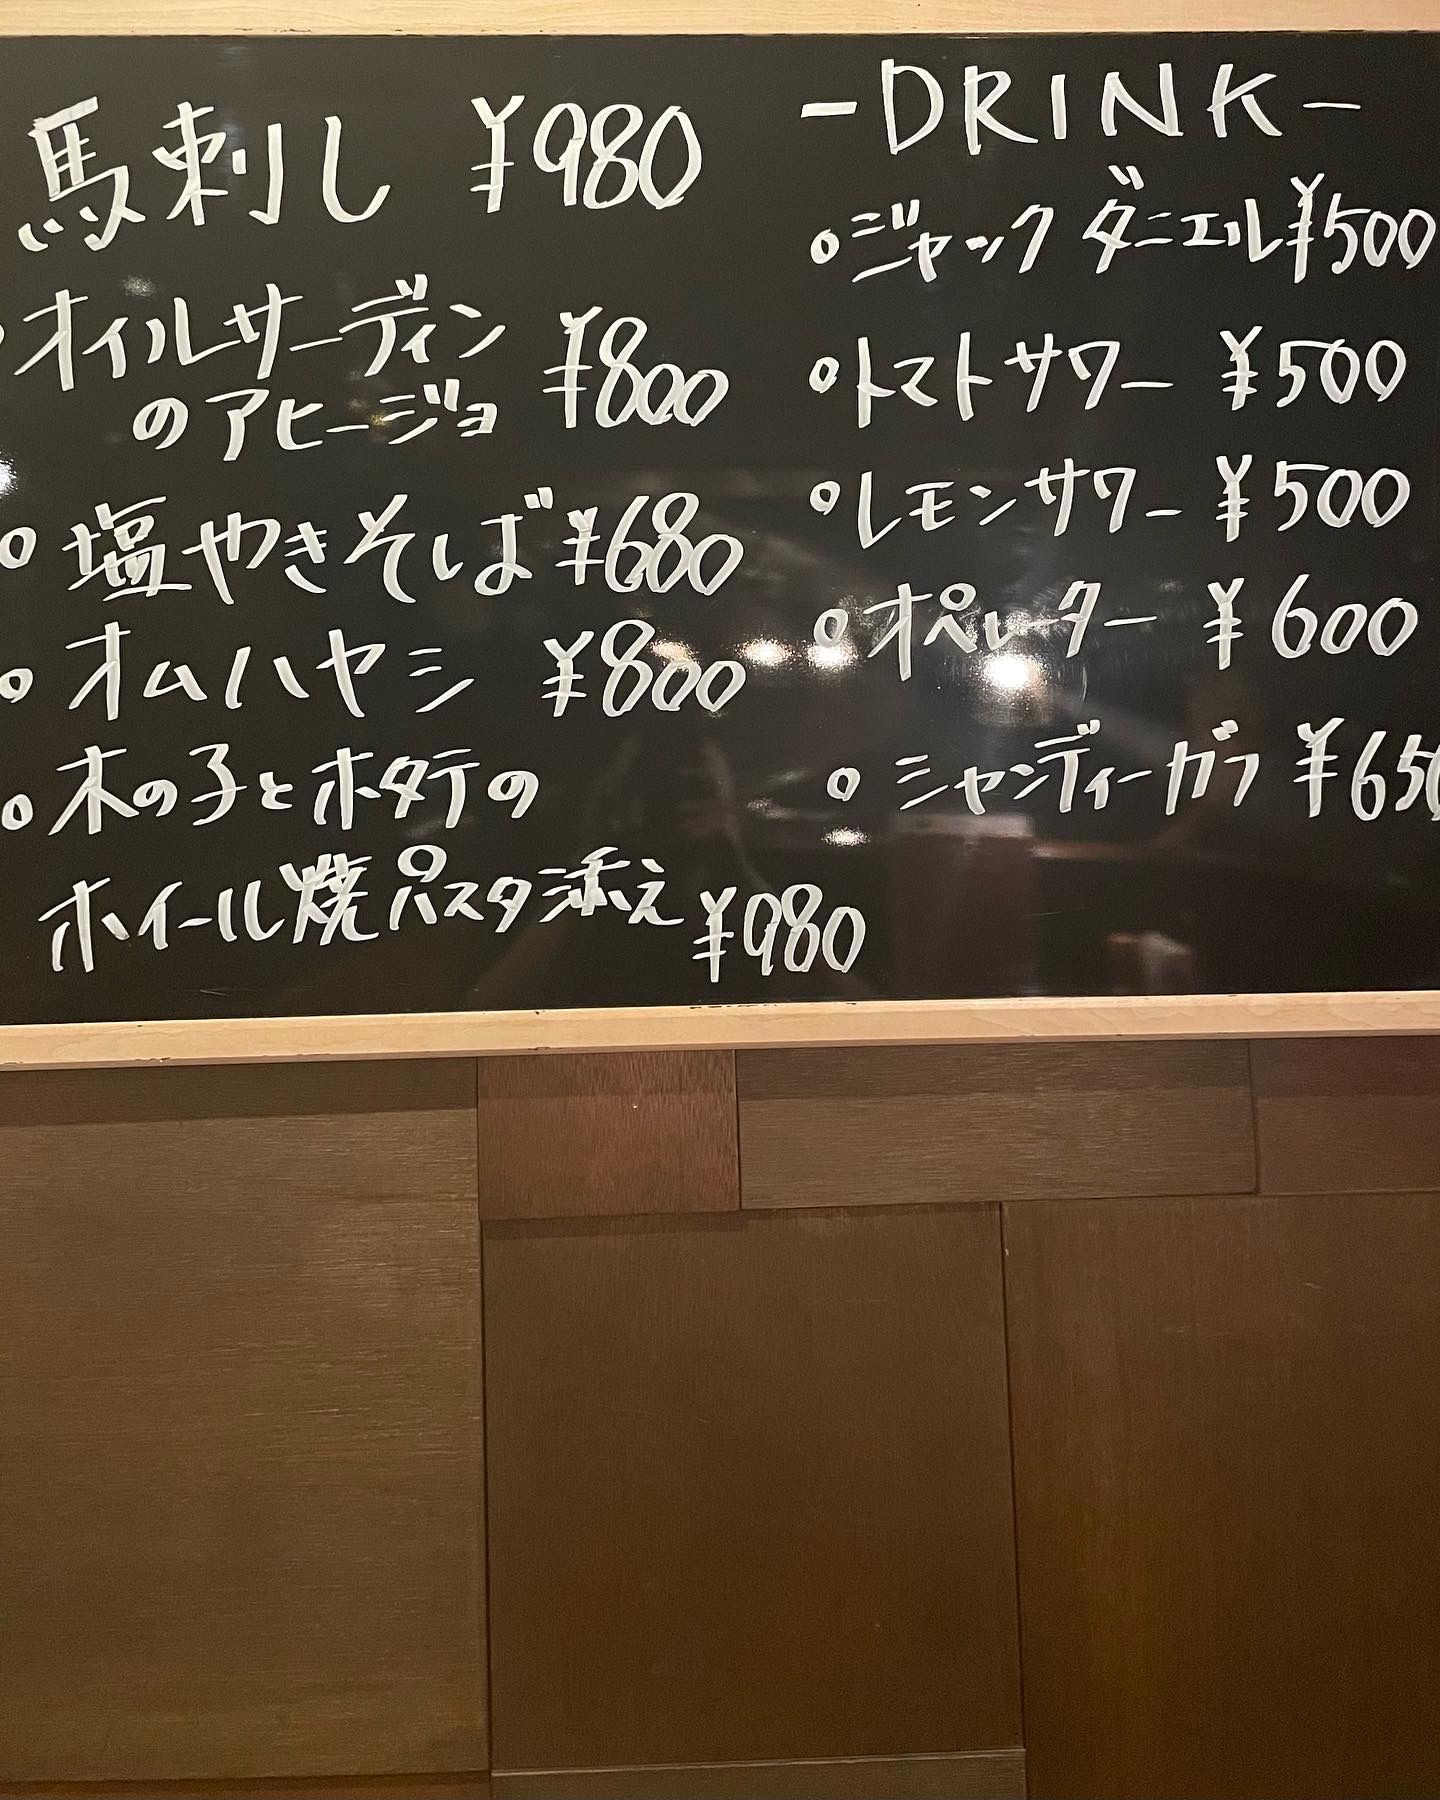 馬刺し ¥980
オイルサーディン
のアヒージョ ¥800
○塩やきそば ¥680
○オムハヤシ ¥800
○木の子とホタテの
ホイール焼パスタ添え ¥980
-DRINK-
○ジャック ダニエル ¥500
○トマトサワー ¥500
○レモンサワー ¥500
○オペレーター ¥600
○シャンディーガラ ¥650